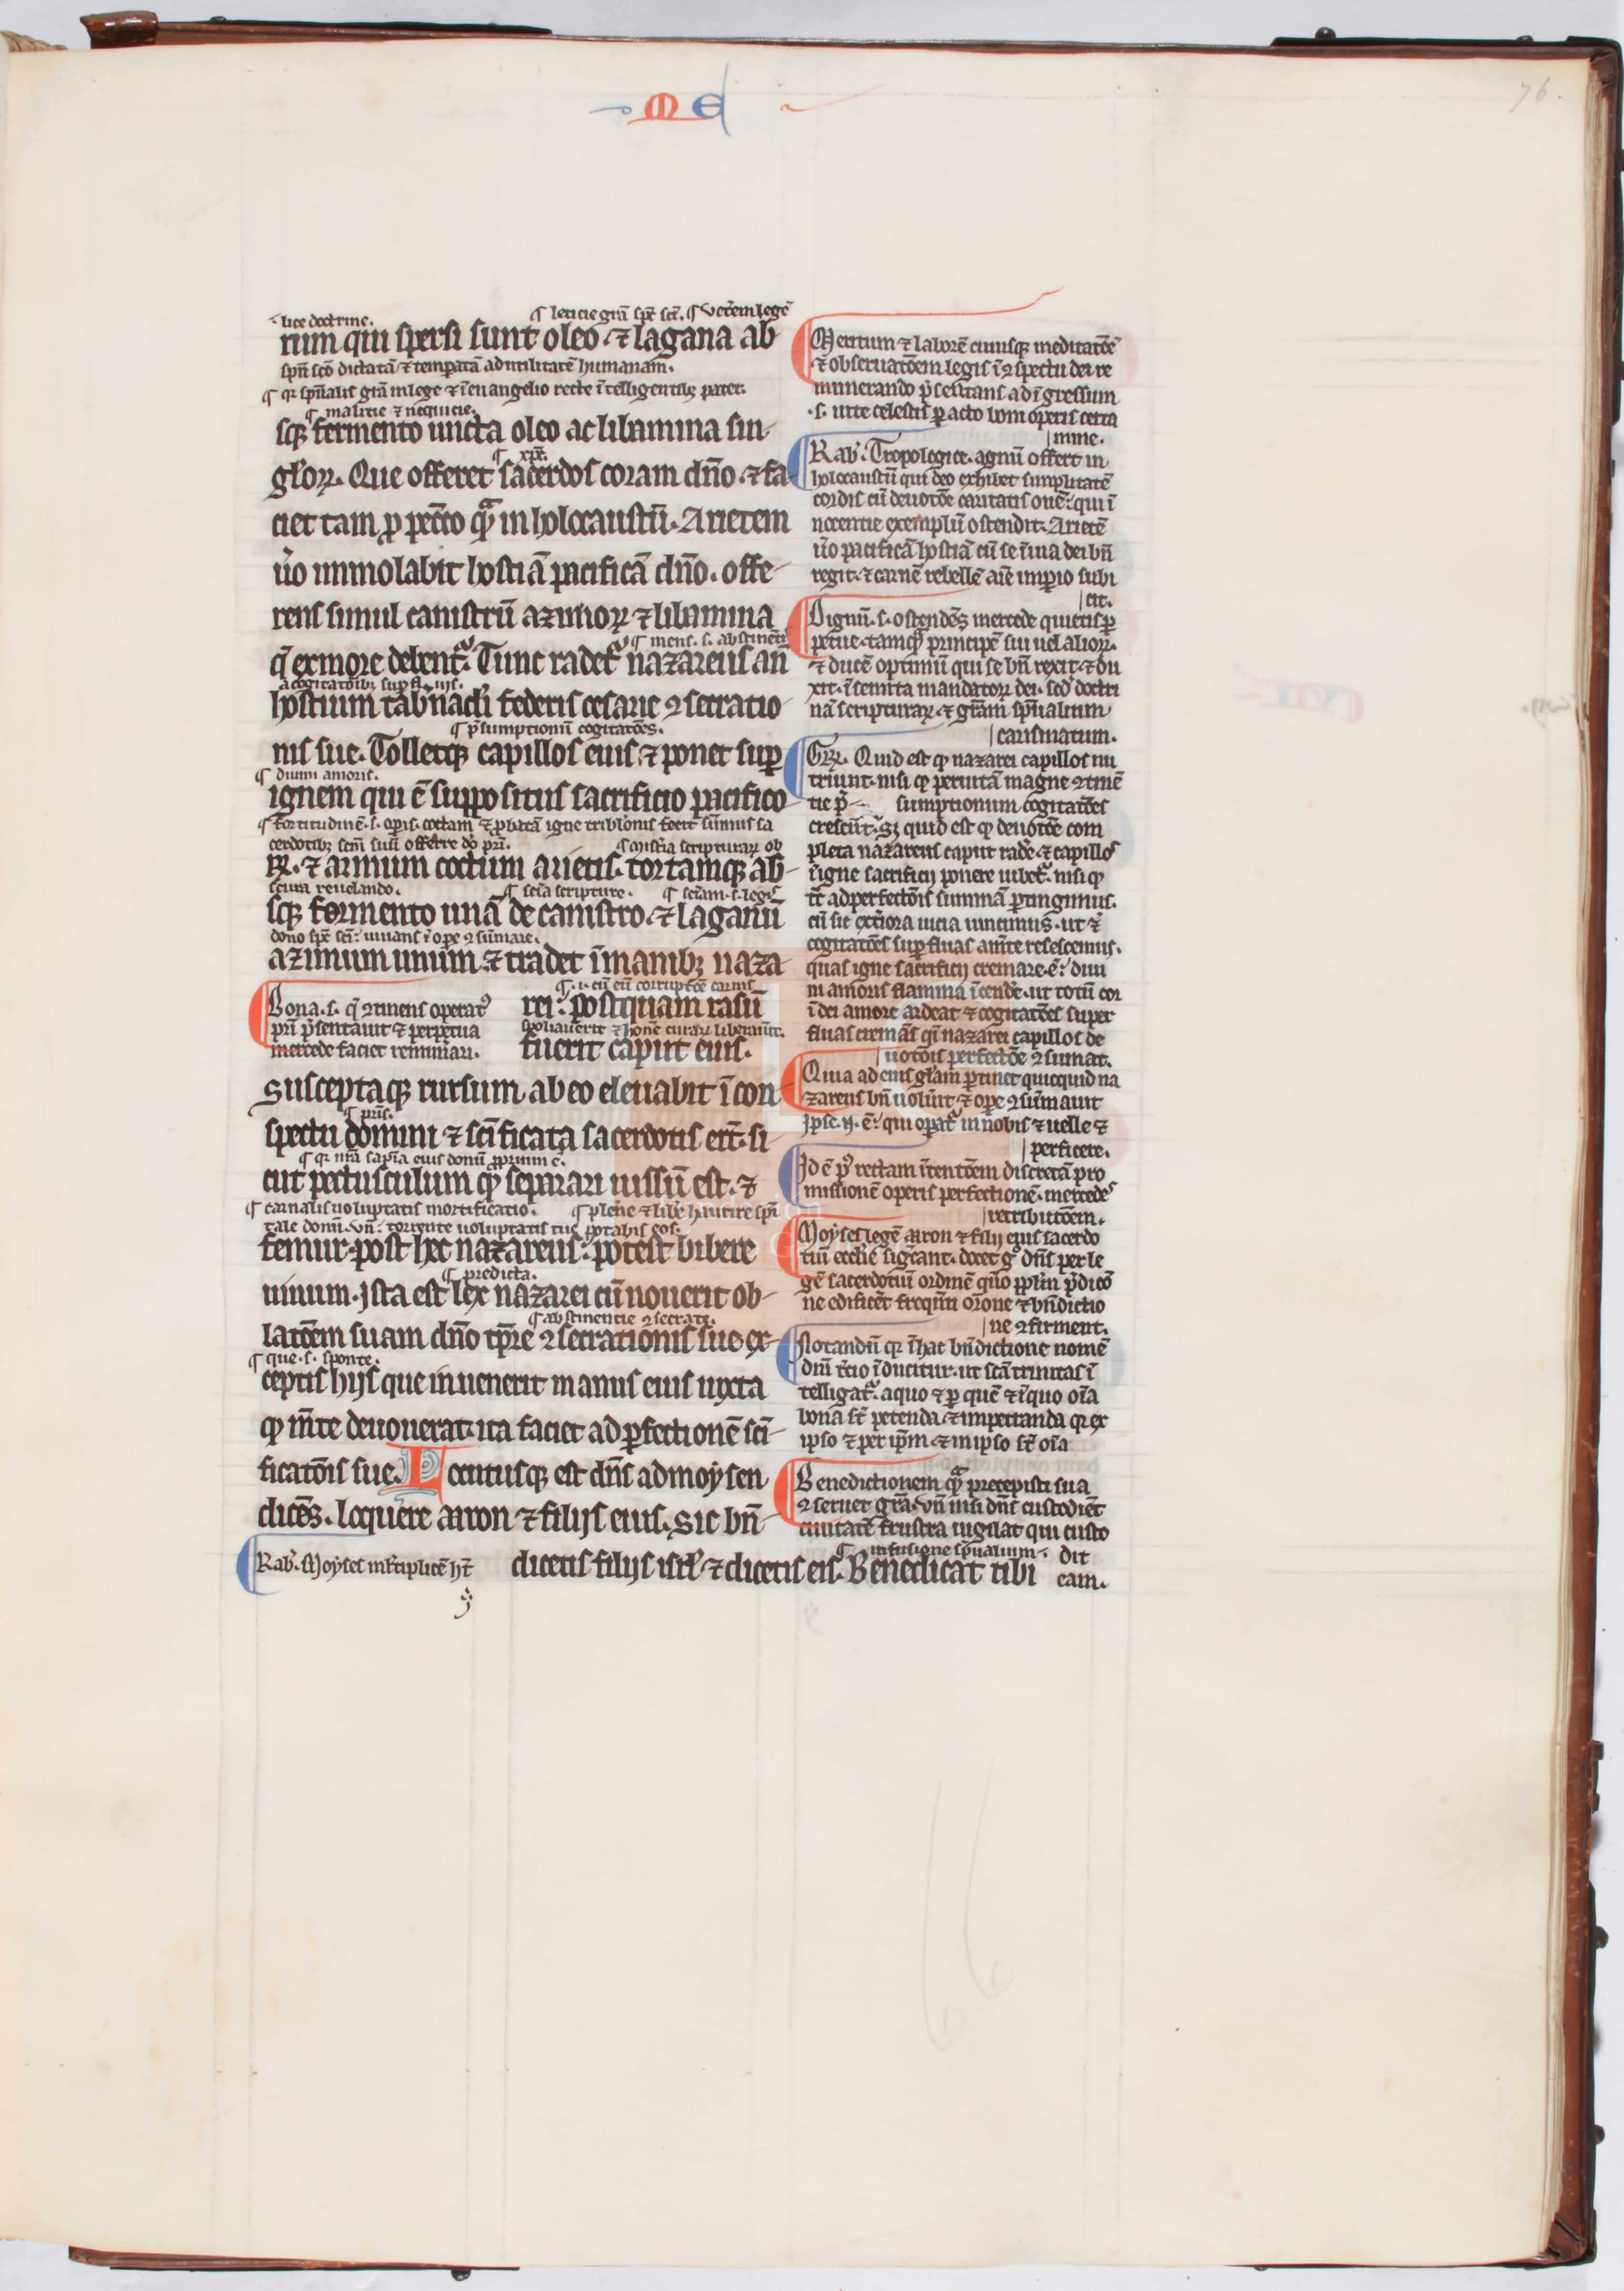 M E
76.
lice doctrine. ¶ leticie grã spc̃ sci. ¶ veterem legẽ
rum qui spersi sunt oleo. ⁊ lagana ab
spũ scõ dictatã ⁊ temperatã ad utilitatẽ humanam.
¶ qr spũalis grã in lege ⁊ ĩ euangelio recte ĩtelligentibꝫ patet.
¶ malitie ⁊ nequicie.
sqꝫ fermento uncta oleo ac libamina sin
¶ xpc̃.
gl'oꝝ. Que offeret sacerdos coram dño. ⁊ fa
ciet tam ꝓ pecc̃o qᷓ in holocaustũ. Arietem
ũo immolabit hostiã pacificã dño. offe
rens simul canistrũ azimoꝝ ⁊ libamina
¶ mens. s. abstinẽti
q̃ ex more debent.᷒ Tunc radet᷒ nazareus añ
a cogitatõibꝫ supfluis.
hostium tab̃nac̃li federis cesarie ꝯsecratio
¶ p̃sumptionũ cogitatões.
nis sue. Tolletqꝫ capillos eius ⁊ ponet sup̱
¶ diuini amoris.
ignem qui ẽ suppositus sacrificio pacifico
¶ fortitudinẽ. s. op̱is. coctam ⁊ ꝓbatã igne tribl'onis fecit sũmus sa
cerdotibꝫ scm̃ suũ offerre dõ pri. ¶ misĩa scripturaꝝ ob
ꝝ. ⁊ armum coctum arietis. tortamqꝫ ab
scura reuelando. ¶ sciã scripture. ¶ sciãm. s. legis
sqꝫ fermento unã de canistro. ⁊ laganũ
dono spc̃ sci: uiuans ĩ ope ꝯsũmare.
azimum unum. ⁊ tradet ĩ manibꝫ naza
¶ .i. cũ eũ corruptõe carnis
rei: postquam rasũ
spoliauerit ⁊ honẽ curaꝝ liberauit.
fuerit caput eius.
Bona. s. q̃ ꝯtinens operat᷒
pri p̃sentauit ⁊ perpetua
mercede faciet remũari.
Susceptaqꝫ rursum ab eo eleuabit ĩ con
¶ pris.
spectu domini ⁊ scĩficata sacerdotis erit. si
¶ qr nr̃a sapia eius donũ ꝓprium ẽ.
cut pectusculum qᷓ separari iussũ est. ⁊
¶ carnalis uoluptatis mortificatio. ¶ plene ⁊ libe haurire spũ
tale donũ. vñ: torrente uoluptatis tue potabis eos.
femur. post hec nazareus: potest bibere
¶ predicta.
uinum. Ista est lex nazarei cũ nouerit ob
¶ abstinentie ꝯsecrate.
latõem suam dño tp̃re ꝯsecrationis sue ex
¶ que. s. sponte.
ceptis hijs que inuenerit manus eius iuxta
qͥ m̃te deuouerat. ita faciet ad ꝑfectionẽ sci
ficatõis sue. Locutusqꝫ est dñs ad moysen
dicẽs. loquere aaron ⁊ filijs eius. Sic bñ
¶ infusione sp̃ualium.
dicetis filijs isrł ⁊ dicetis eis. Benedicat tibi
Rab. Moyses m̃ltiplicẽ ht̃
Meritum ⁊ laborẽ cuiusqꝫ meditatõe
⁊ obseruatõem legis ĩ ꝯspectu dei re
munerando p̃sentans ad ĩgressum
.s. uite celestis ꝑacto boni operis certa
mine.
Rab. Tropologice. agnũ offert in
holocaustũ qui deo exhibet simplitatẽ
cordis cũ deuotõe caritatis ouẽ: qui ĩ
nocentie exemplũ ostendit. Arietẽ
ũo pacificã hostiã cũ se ĩ uia dei bñ
regit. ⁊ carnẽ rebellẽ aĩe imꝑio subi
cit.
Dignũ. s. ostendẽs mercede quietis ꝑ
petue. tamqᷓ principẽ sui uel alioꝝ.
⁊ ducẽ optimũ qui se bñ rexit. ⁊ du
xit. ĩ semita mandatoꝝ dei. scd̃ doctri
nã scripturaꝝ. ⁊ grãm sp̃ualium
carismatum.
Grg. Quid est qͥ nazarei capillos nu
triunt. nisi qͥ per uitã magne ꝯtinẽ
tie p̃ sumptionum cogitatões
crescũt. Sꝫ quid est qͥ deuotõe com
pleta nazareus caput radẽ. ⁊ capillos
ĩ igne sacrificij ponere iubet᷒. nisi qͥ
tc̃ ad perfectõis summã ꝑtingimus.
cũ sic ext̃iora uicia uincimus. ut ⁊
cogitatões suꝑfluas a m̃te resescemus.
quas igne sacrificij cremare. ẽ: diui
ni amoris flamma ĩcendẽ. ut totũ cor
ĩ dei amore ardeat ⁊ cogitatões super
fluas cremãs qͥ nazarei capillos de
uotõis perfectõe ꝯsumat.
Quia ad eius gl'am ꝑtinet quicquid na
zareus bñ uoluit ⁊ ope ꝯsũmauit
Ipse. n. ẽ: qui oꝑat᷒ in nobis ⁊ uelle ⁊
perficere.
Id ẽ p᷒ rectam ĩtentõem discretã pro
missionẽ operis perfectionẽ. mercedẽ
retributõem.
Moyses legẽ aaron ⁊ filij eius sacerdo
tiũ eccl'ie sig̃cant. docet gͦ dñs per le
gẽ sacerdotiũ ordinẽ quõ ppl'm p̃dicõ
ne edificet frequẽti orõne ⁊ bñdictio
ne ꝯfirment.
Notandũ qr ĩ hac bñdictione nomẽ
dñi tcio ĩducitur. ut scã trinitas ĩ
telligat᷒. a quo ⁊ ꝑ quẽ ⁊ ĩ quo oĩa
bona st̃ petenda ⁊ impetranda qr ex
ipso ⁊ per ip̃m ⁊ in ipso st̃ oĩa
Benedictionem qᷓ precepisti sua
ꝯseruet grã. vñ nisi dñs custodierit
ciuitatẽ frustra uigilat qui custo
dit
eam.